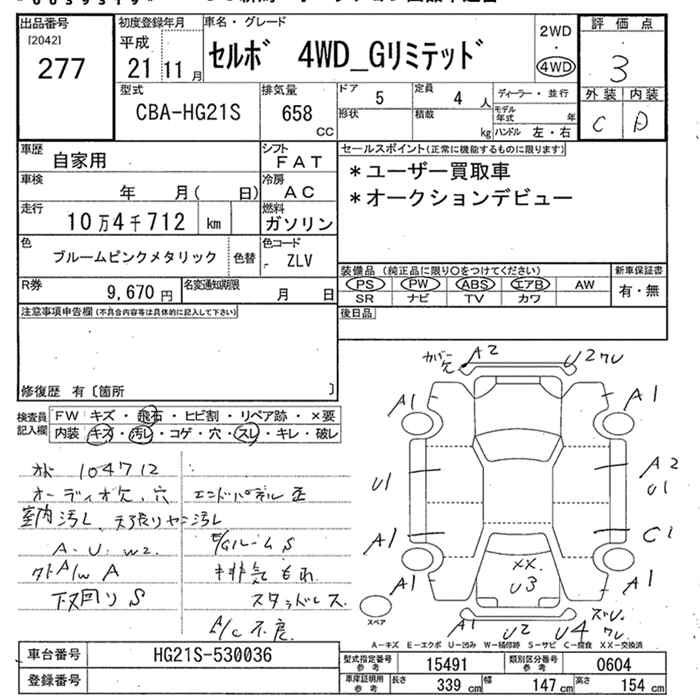 出品番号
[2042]
277
初度登録年月
平成
21 11月
車名・グレード
セルボ 4WD_Gリミテッド
2WD
・
4WD
評価点
3
外装 内装
C D
型式
CBA-HG21S
排気量
658
CC
ドア
5
定員
4 人
形状
積載
kg
ディーラー・並行
モデル年式 年
ハンドル 左・右
車歴
自家用
シフト
FAT
車検
年 月( 日)
冷房
AC
走行
10万4千712 km
燃料
ガソリン
色
ブルームピンクメタリック
色替
色コード
ZLV
R券
9,670 円
名変通知期限
月 日
セールスポイント(正常に機能するものに限ります)
*ユーザー買取車
*オークションデビュー
装備品(純正品に限り○をつけてください)
PS PW ABS エアB AW
SR ナビ TV カワ
新車保証書
有・無
後日品
注意事項申告欄(不具合内容等は具体的に記入して下さい)
修復歴 有〔箇所 〕
検査員
記入欄
FW キズ・飛石・ヒビ割・リペア跡・×要
内装 キズ・汚レ・コゲ・穴・スレ・キレ・破レ
104712
オーディオ欠、穴
室内汚レ、天張りヤニ汚レ
A.U.W2.
外A/W A
下回りS
エンドパネル歪
E/GルームS
排気もれ
スタッドレス
A/C不良
カバー欠
A2
U2
A1
A1
U1
A2
U1
A1
C1
A1
A1
XX.
U3
A1
U2
U4
スペア
A-キズ E-エクボ U-凹み W-補修跡 S-サビ C-腐食 XX-交換済
車台番号
HG21S-530036
登録番号
型式指定番号
参考
15491
類別区分番号
参考
0604
車庫証明用
参考
長さ
339 cm
幅
147 cm
高さ
154 cm